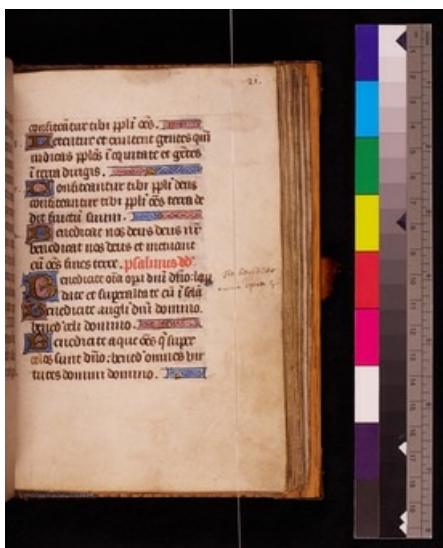 21.
confiteātur tibi ppli oēs.
Letentur et exultent gentes qm̄
iudicas pplōs ī equitate et gētes
ī terra dirigis.
Confiteantur tibi ppli deus
confiteātur tibi ppli oēs terra de
dit fructū suum.
Benedicat nos deus deus nr̄
benedicat nos deus et metuant
eū oēs fines terre. psalmus dd
Benedicite oīa opa dn̄i dn̄o: lau
date et superexaltate eū ī scl̄a
Benedicite angli dn̄i domino.
bened̄ celi domino.
Benedicite aque oēs q̄ super
celos sunt dn̄o: bened̄ omnes vir
tutes domini domino.